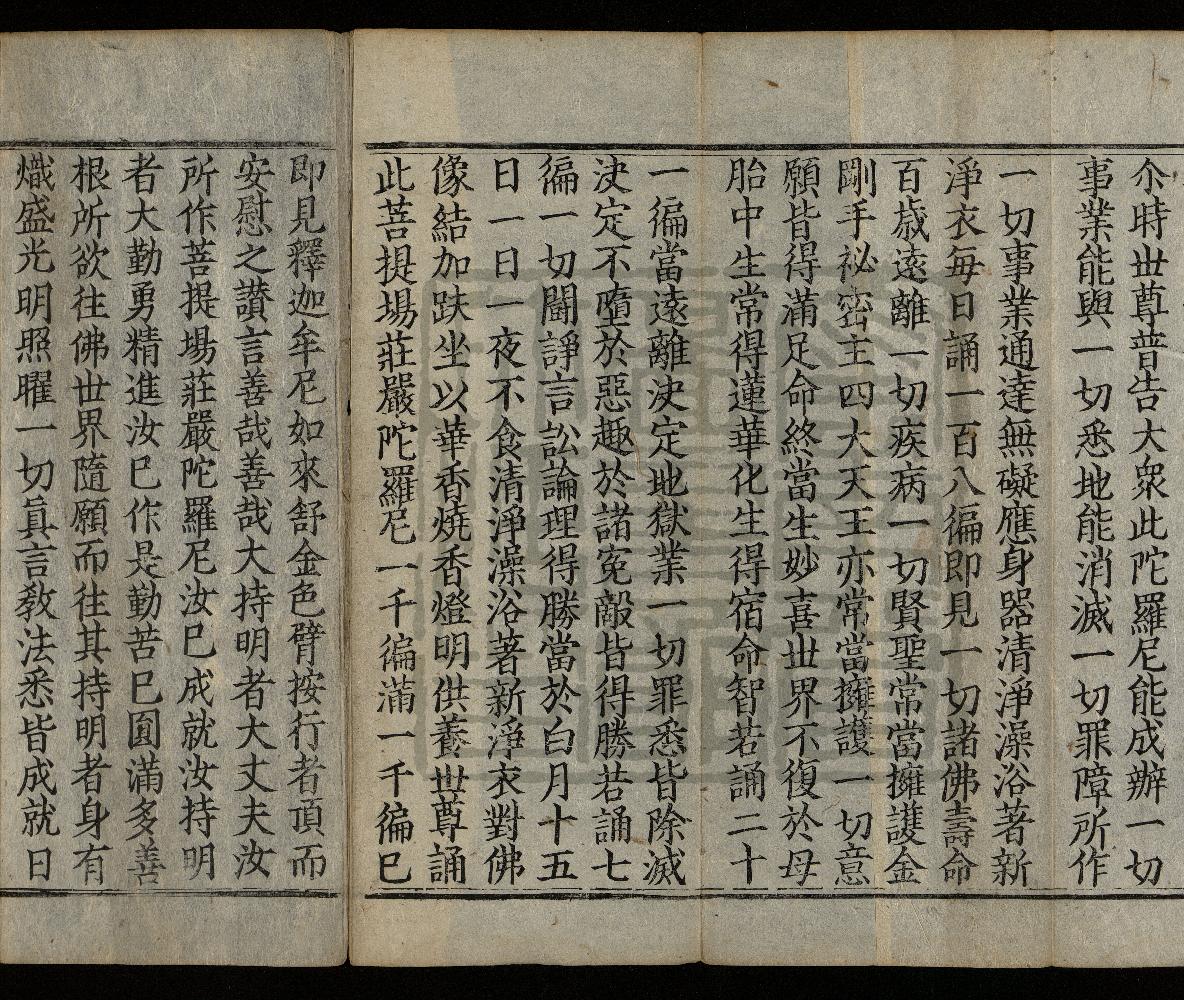 尒時世尊普告大衆此陀羅尼能成辦一切
事業能與一切悉地能消滅一切罪障所作
一切事業通達無礙應身器清淨澡浴著新
淨衣每日誦一百八徧即見一切諸佛壽命
百歲遠離一切疾病一切賢聖常當擁護金
剛手祕密主四大天王亦常當擁護一切意
願皆得滿足命終當生妙喜世界不復於母
胎中生常得蓮華化生得宿命智若誦二十
一徧當遠離決定地獄業一切罪悉皆除滅
決定不墮於惡趣於諸冤敵皆得勝若誦七
徧一切鬪諍言訟論理得勝當於白月十五
日一日一夜不食清淨澡浴著新淨衣對佛
像結加趺坐以華香燒香燈明供養世尊誦
此菩提場莊嚴陀羅尼一千徧滿一千徧巳
即見釋迦牟尼如來舒金色臂按行者頂而
安慰之讚言善哉善哉大持明者大丈夫汝
所作菩提場莊嚴陀羅尼汝巳成就汝持明
者大勤勇精進汝巳作是勤苦巳圓滿多善
根所欲往佛世界隨願而往其持明者身有
熾盛光明照曜一切眞言敎法悉皆成就日